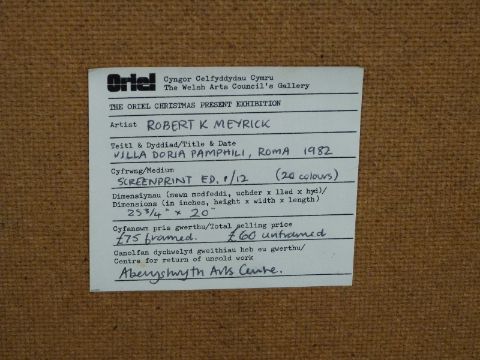 Oriel Cyngor Celfyddydau Cymru
The Welsh Arts Council's Gallery
THE ORIEL CHRISTMAS PRESENT EXHIBITION
Artist ROBERT K MEYRICK
Teitl & Dyddiad/Title & Date
VILLA DORIA PAMPHILI, ROMA 1982
Cyfrwng/Medium
SCREENPRINT ED. 1/12 (20 colours)
Dimensiynau (mewn modfeddi, uchder x lled x hyd)/
Dimensions (in inches, height x width x length)
25 3/4" x 20"
Cyfanswm pris gwerthu/Total selling price
£75 framed. £60 unframed
Canolfan dychwelyd gweithiau heb eu gwerthu/
Centre for return of unsold work
Aberystwyth Arts Centre.